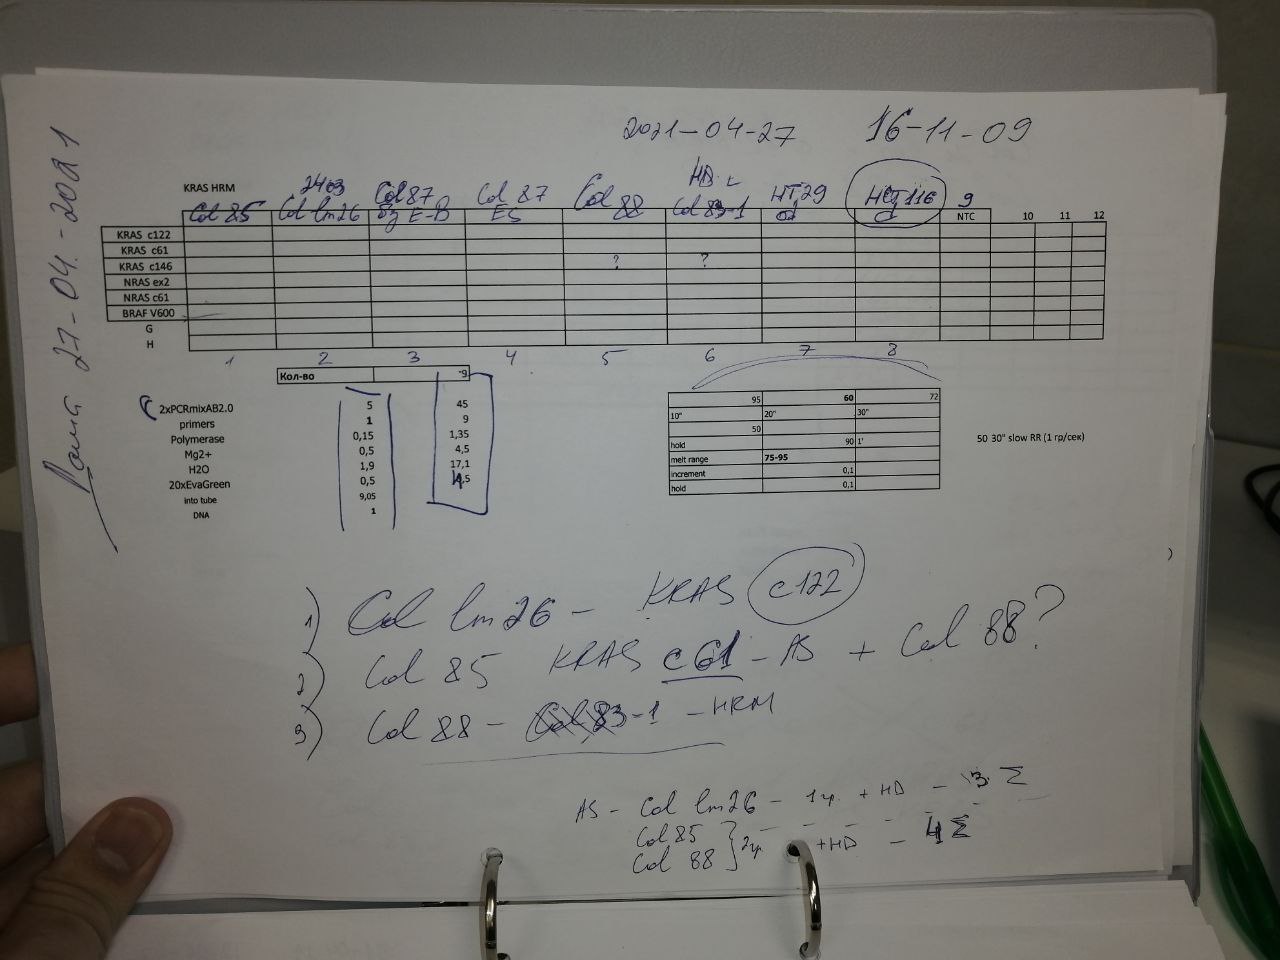 2021-04-27 16-11-09
27-04.-2021
KRAS HRM
Col 85 Col lm26 Col 87 E-B Col 87 ES Col 88 HD Col 83-1 HT29 HCT116 9 NTC 10 11 12
KRAS c122
KRAS c61
KRAS c146 ? ?
NRAS ex2
NRAS c61
BRAF V600
G
H
1 2 3 4 5 6 7 8
Кол-во 9
2xPCRmixAB2.0 5 45
primers 1 9
Polymerase 0,15 1,35
Mg2+ 0,5 4,5
H2O 1,9 17,1
20xEvaGreen 0,5 4,5
into tube 9,05
DNA 1
95 60 72
10" 20" 30"
50
hold 90 1'
melt range 75-95
increment 0,1
hold 0,1
50 30" slow RR (1 гр/сек)
1) Col lm26 - KRAS c122
2) Col 85 KRAS c61 - AS + Col 88?
3) Col 88 - Col 83-1 - HRM
AS - Col lm26 - 1ч. + HD - 3 Σ
Col 85
Col 88 } 2ч + HD - 4 Σ